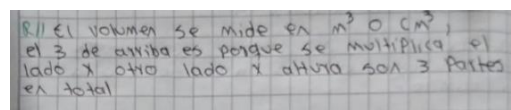 R// El volumen se mide en m³ o cm³,
el 3 de arriba es porque se multiplica el
lado x otro lado x altura son 3 partes
en total